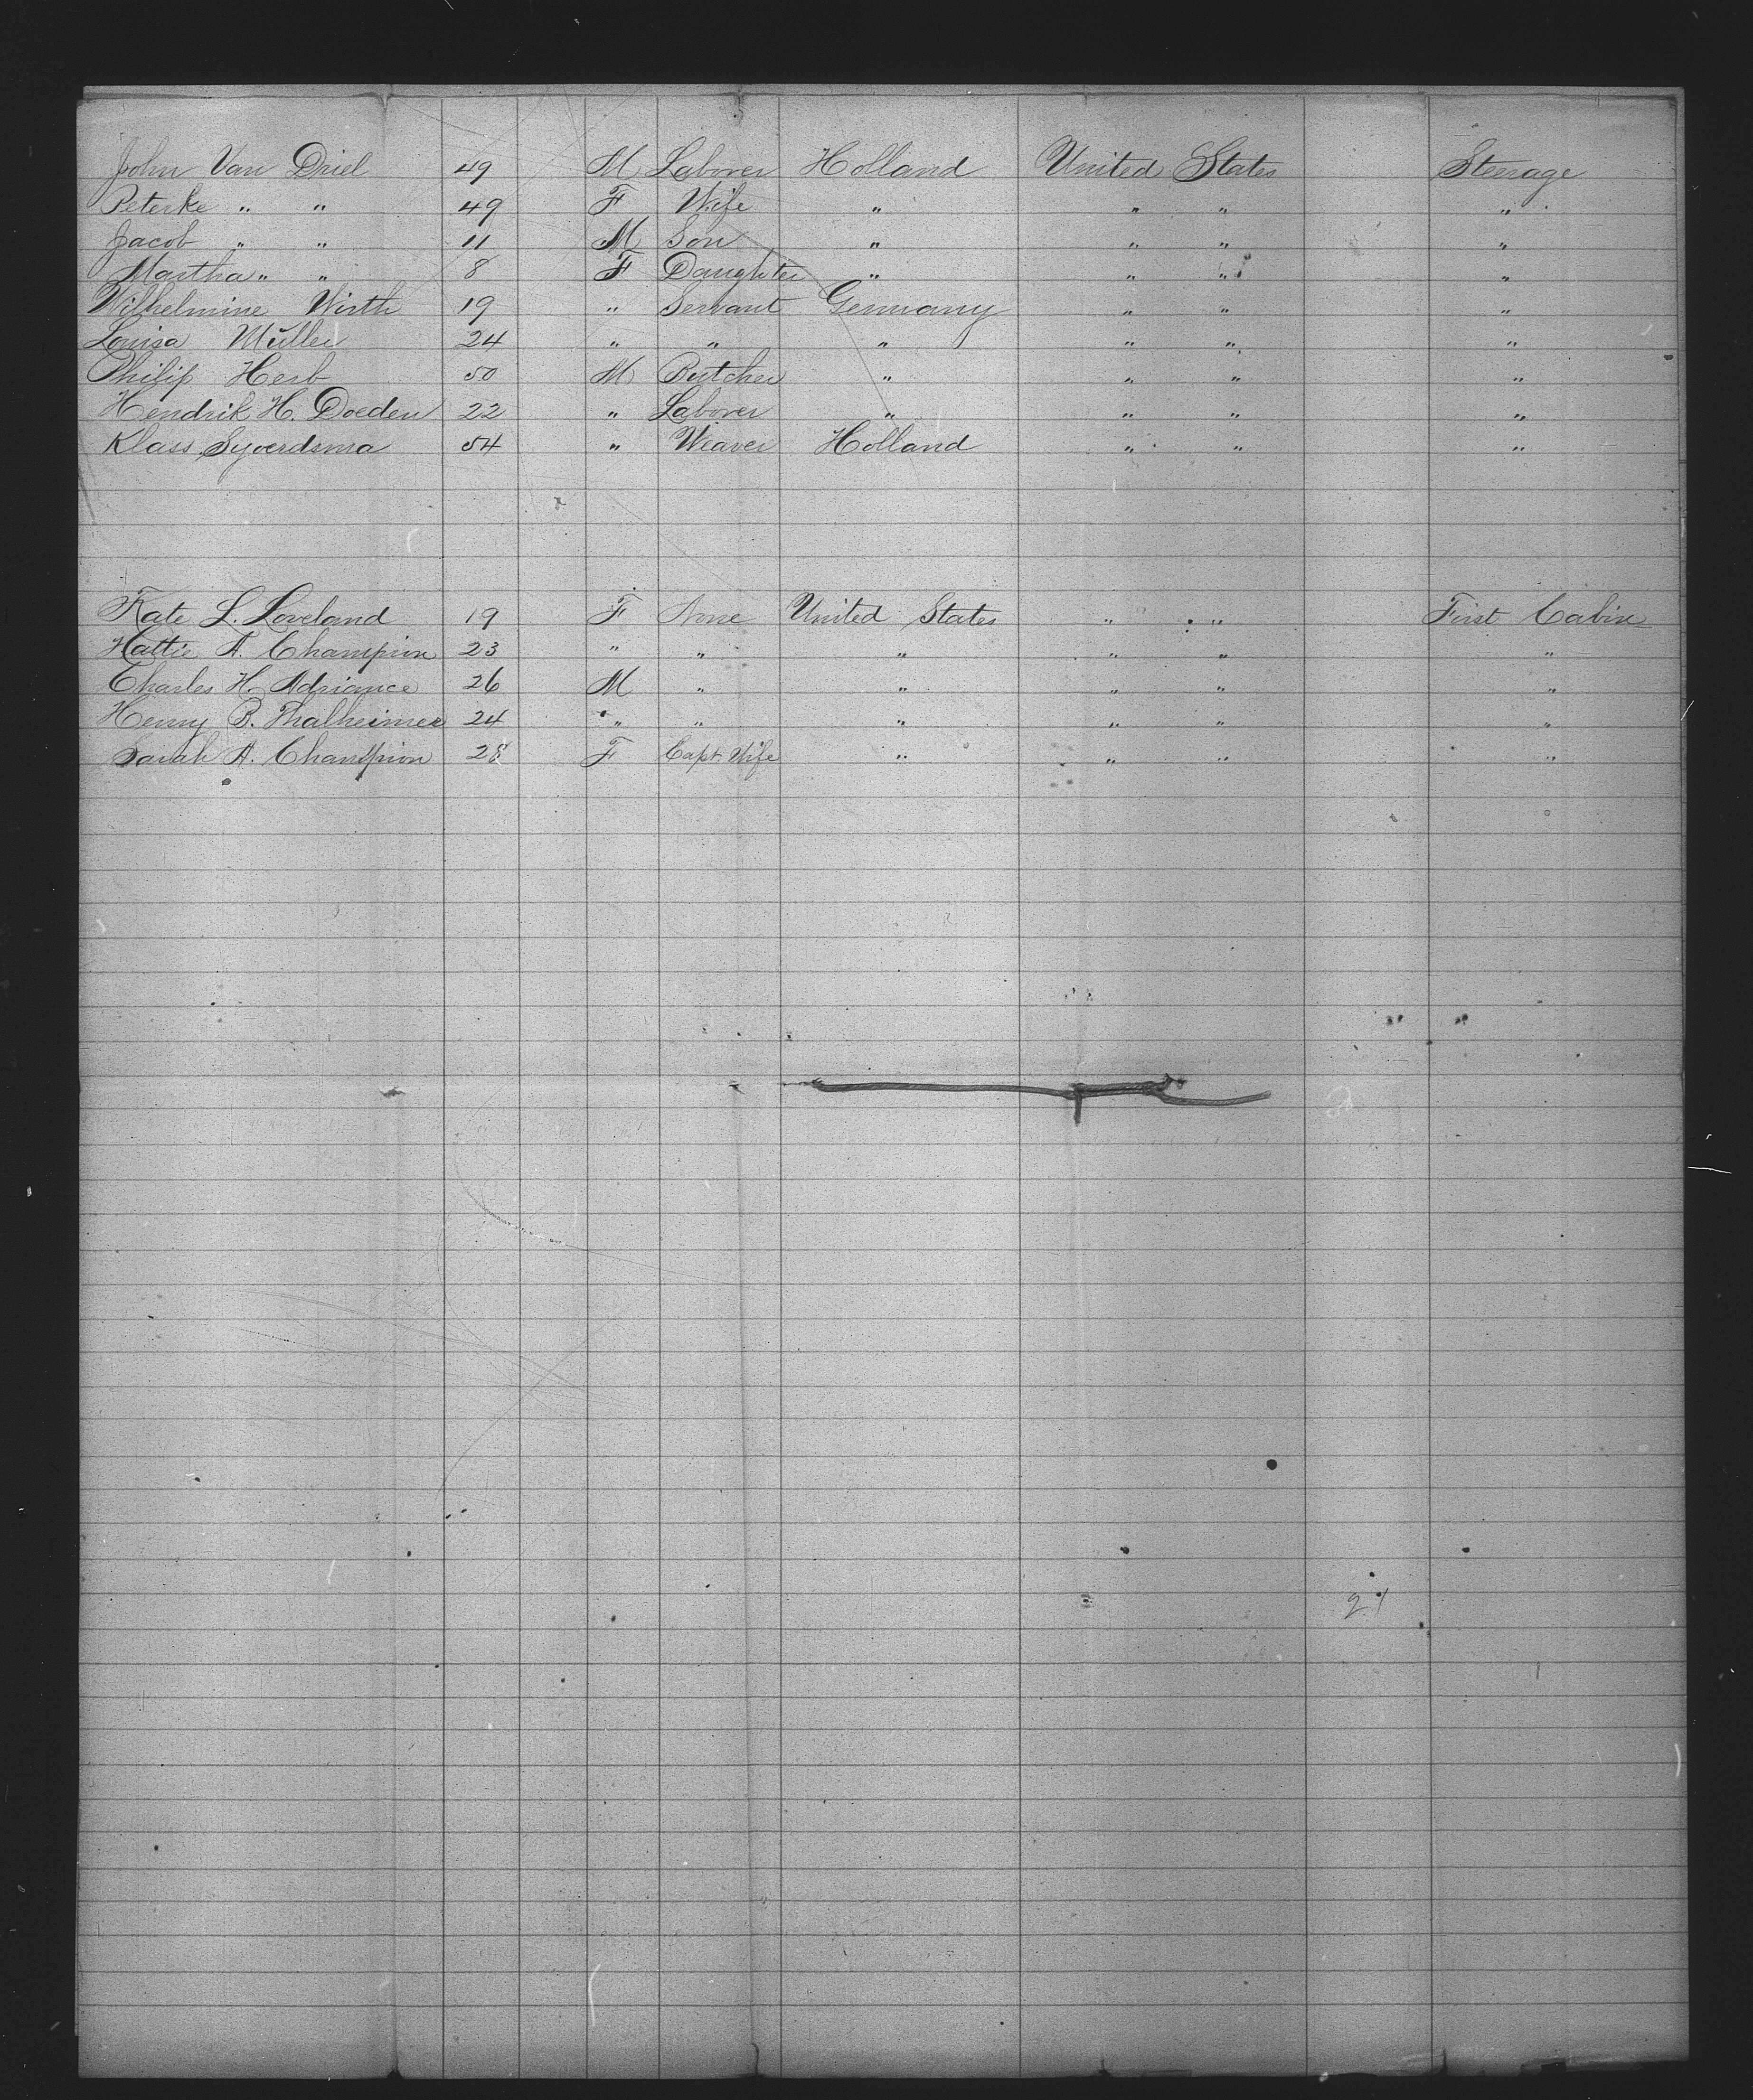 John Van Driel 49 M Laborer Holland United States Steerage
Peterke " " 49 F Wife " " " "
Jacob " " 11 M Son " " " "
Martha " " 8 F Daughter " " " "
Wilhelmine Wirth 19 " Servant Germany " " "
Louisa Müller 24 " " " " " "
Philip Herb 50 M Butcher " " " "
Hendrik H. Doeden 22 " Laborer " " " "
Klass Syoerdsma 54 " Weaver Holland " " "
Kate L. Loveland 19 F None United States " " First Cabin
Hattie A. Champion 23 " " " " " "
Charles H. Adriance 26 M " " " " "
Henry B. Thalheimer 24 " " " " " "
Sarah A. Champion 28 F Capt. Wife " " " "
21